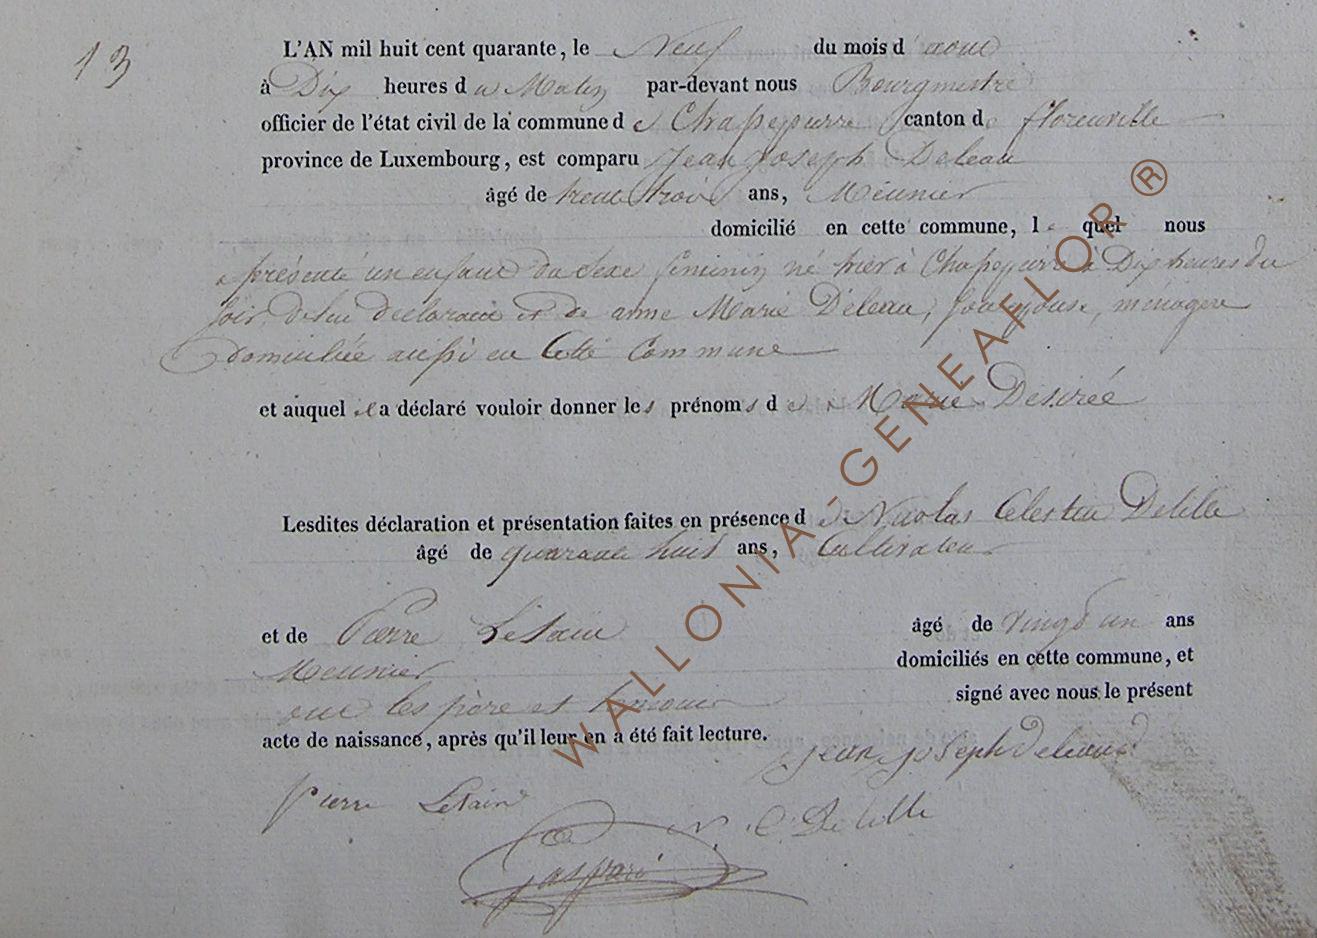 13
L'AN mil huit cent quarante, le Neuf du mois d'aout
à Dix heures du Matin par-devant nous Bourgmestre
officier de l'état civil de la commune de Chassepierre canton de florenville
province de Luxembourg, est comparu Jean Joseph Deleau
âgé de trente trois ans, Meunier
domicilié en cette commune, lequel nous
a présenté un enfant du sexe féminin né hier à Chassepierre à Dix heures du
soir, de lui déclarant et de anne Marie Deleau, son épouse, ménagère
domiciliée aussi en Cette Commune
et auquel il a déclaré vouloir donner les prénoms de Marie Desirée
Lesdites déclaration et présentation faites en présence de Nicolas Celestin Delille
âgé de quarante huit ans, Cultivateur
et de Pierre Letain âgé de vingt un ans
Meunier domiciliés en cette commune, et
ont les père et temoins signé avec nous le présent
acte de naissance, après qu'il leur en a été fait lecture.
Jean Joseph Deleau
Pierre Letain
N. C. Delille
Gaspari
WALLONIA-GENEAFLOR ®